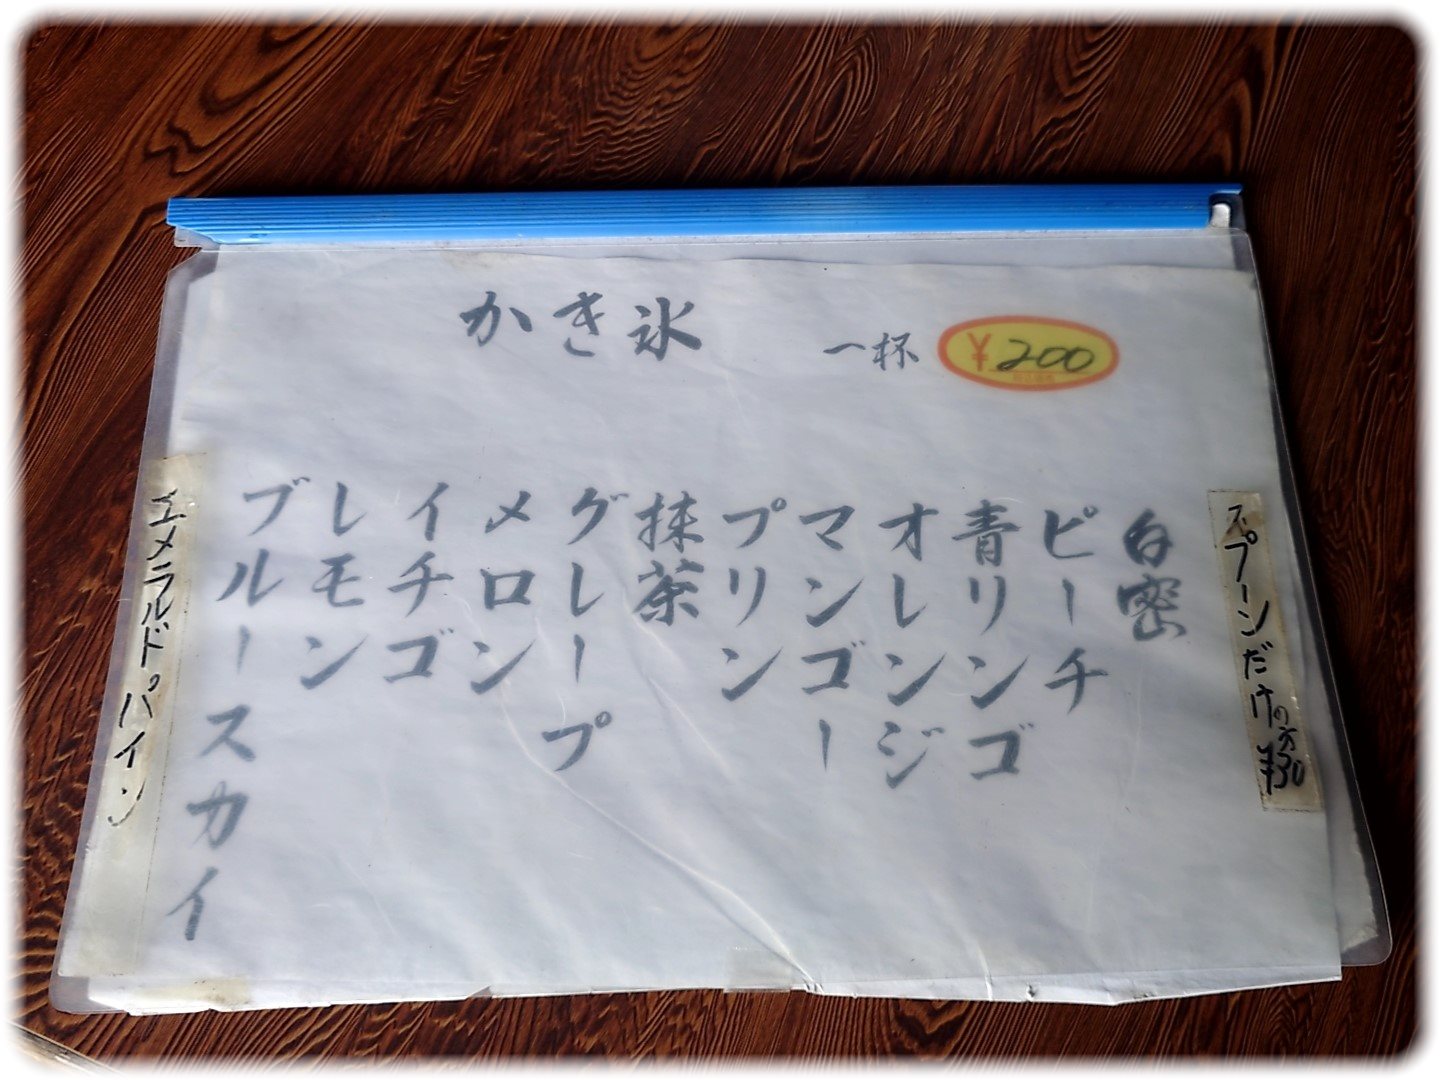 かき氷
一杯 ¥200
スプーンだけの方¥30
白密
ピーチ
青リンゴ
オレンジ
マンゴー
プリン
抹茶
グレープ
メロン
イチゴ
レモン
ブルースカイ
エメラルドパイン